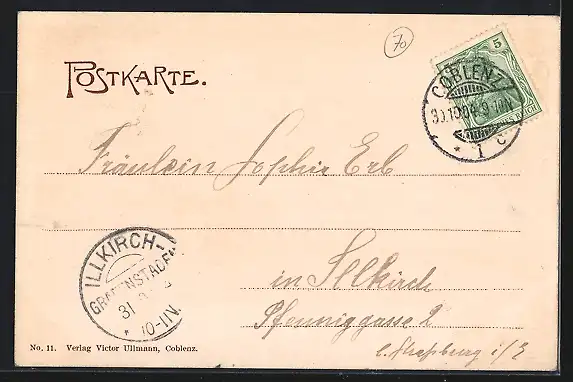 70
POSTKARTE.
5
COBLENZ
* 1 c
Fräulein Sophie Erb
ILLKIRCH-
GRAFENSTADEN
31
* 10-11V.
in Illkirch
Pfenniggasse 2
b. Straßburg i/E
No. 11. Verlag Victor Ullmann, Coblenz.